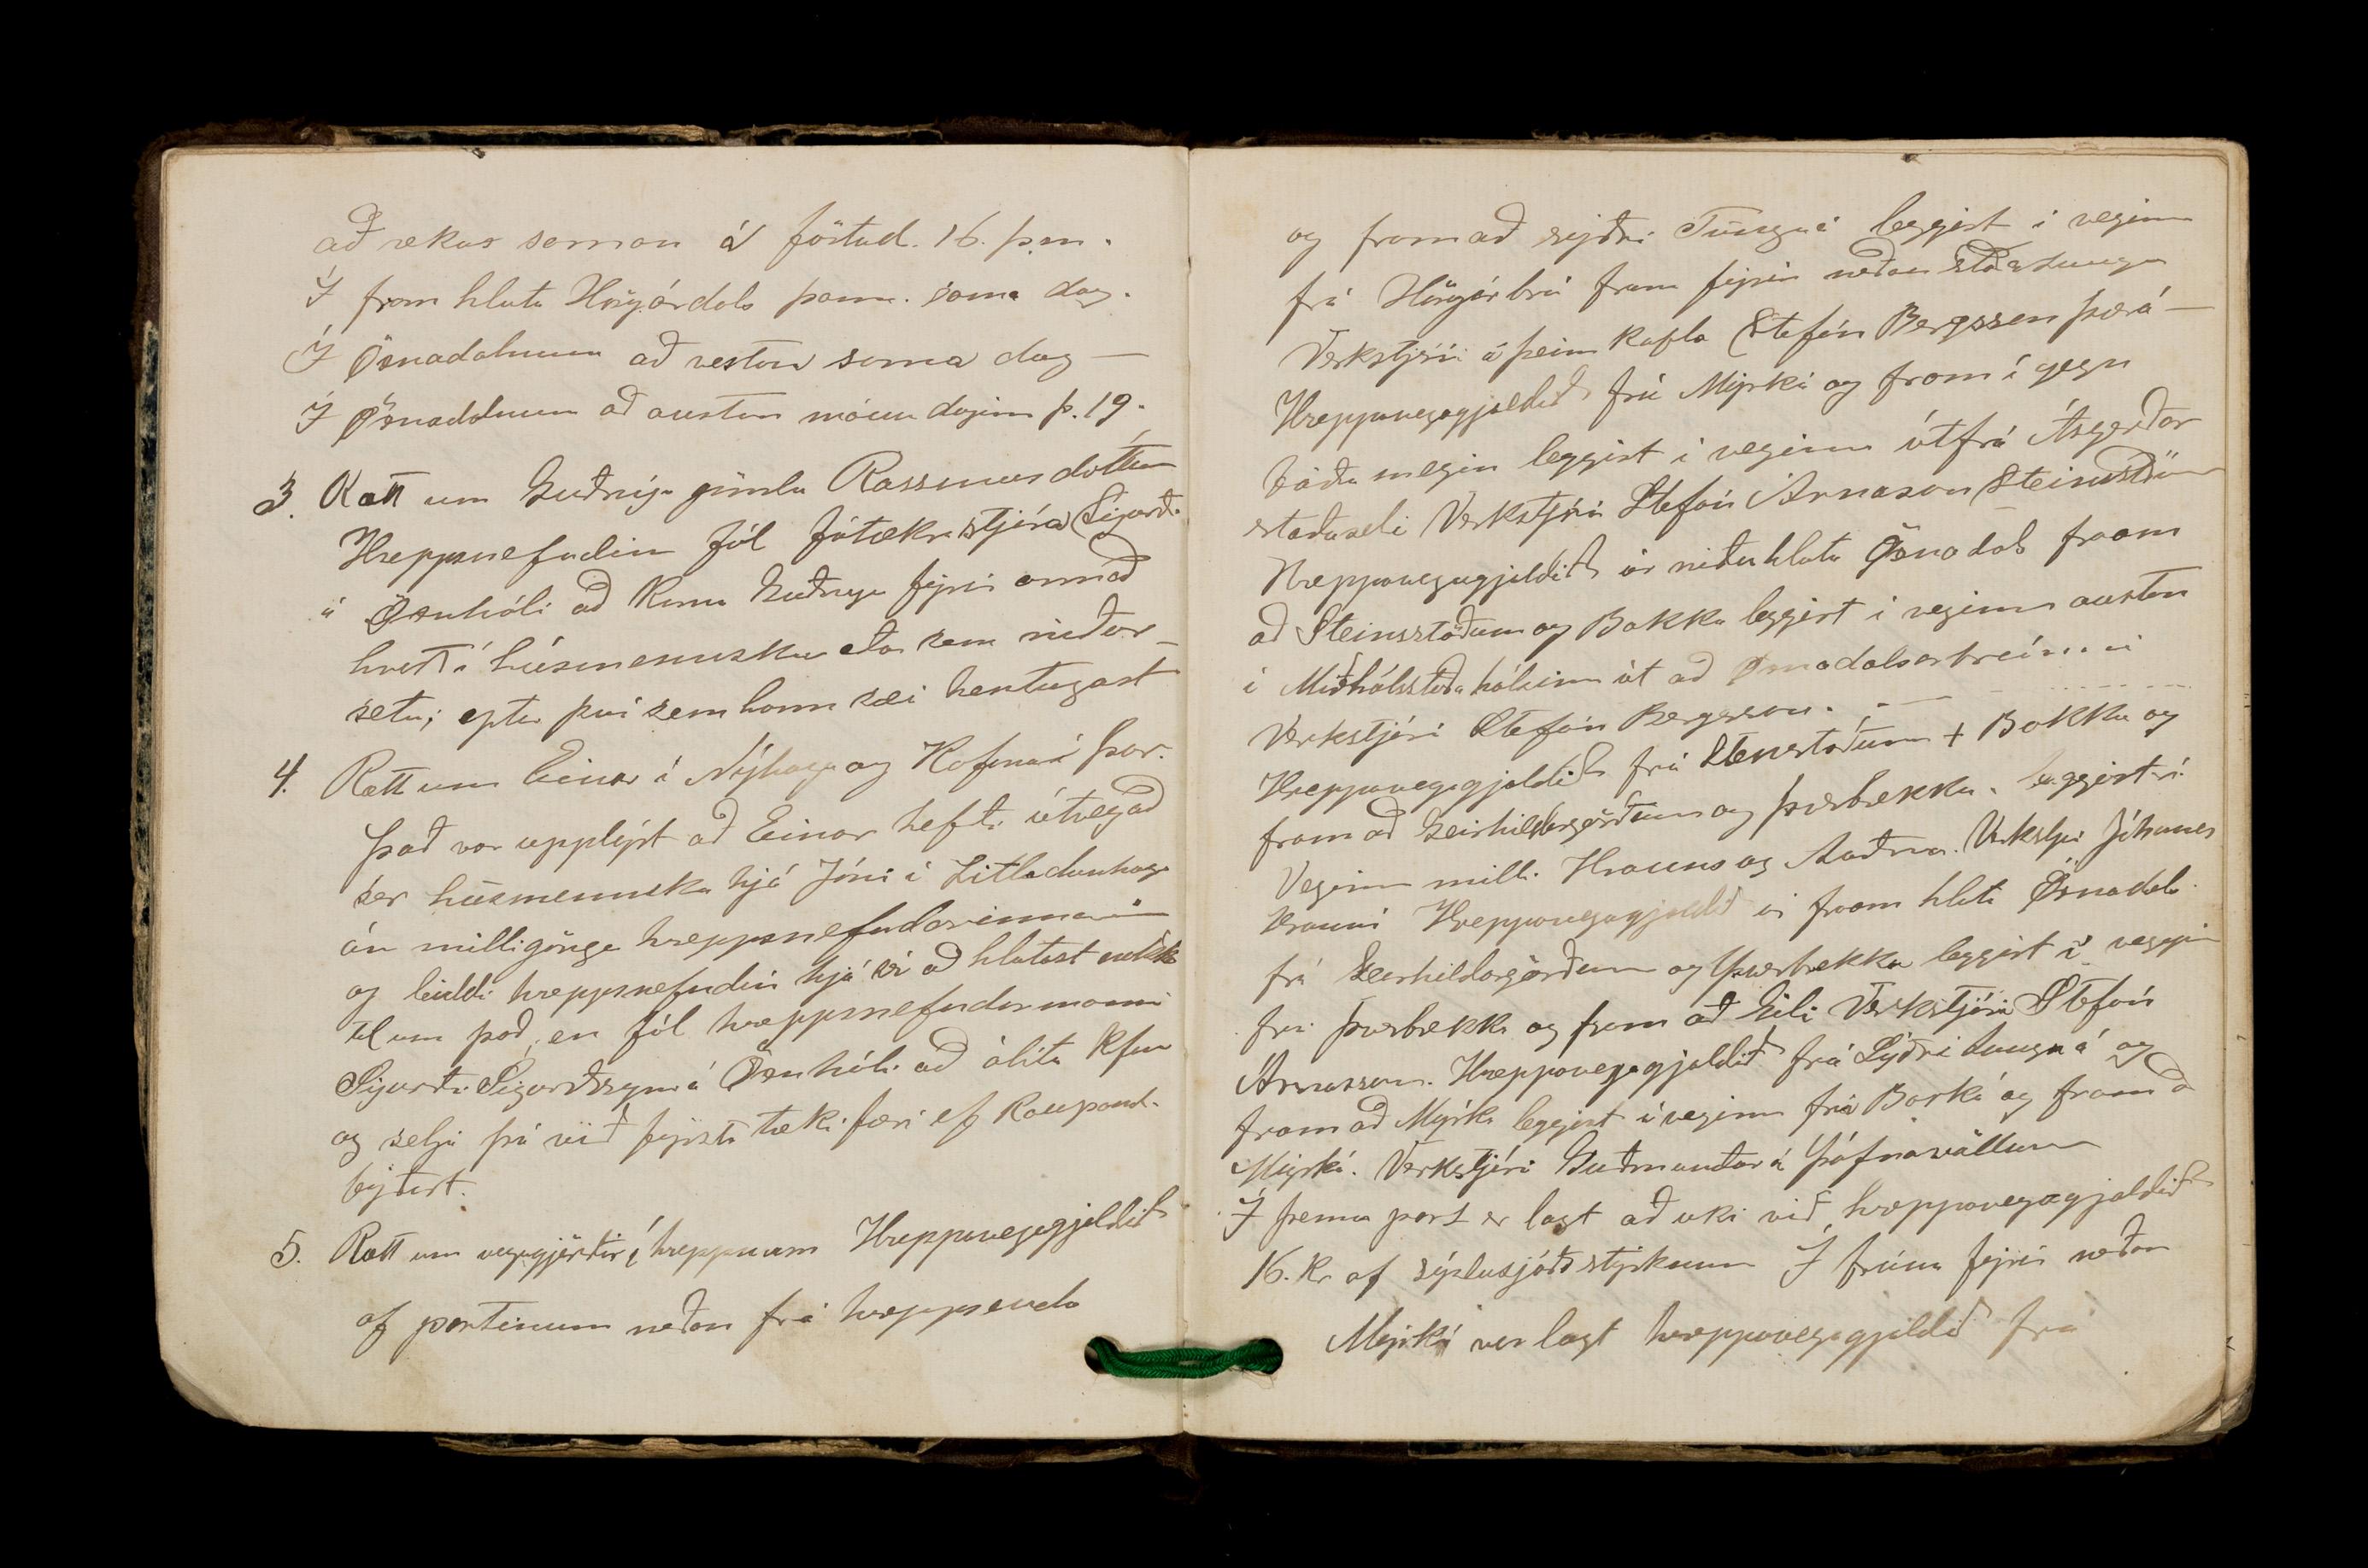 að rekas saman á föstud. 16. þ.m.
Í fram hluta Hörgárdals þann. sama dag.
Í Öxnadalnum að vestan sama dag –
Í Öxnadalnum að austan mánudaginn þ. 19.
3. Rætt um Guðnýju gömlu Rassmusdóttur
Hreppsnefndin fól fátækrastjóra Sigurði
á Öxnhóli að koma Guðnýju fyrir annað
hvert í húsmennsku eða sem niður-
setu, eptir því sem hann sæi hentugast
4. Rætt um Einar í Nýhaga og Kofana þar.
Það var upplýst að Einar hefði útvegað
sér húsmennsku hjá Jóni í Litladunhaga
án milligöngu hreppsnefndarinnar
og leiddi hreppsnefndin hjá sér að hlutast
til um það, en fól hreppsnefndarmanni
Sigurði Sigurðssyni á Öxnhóli að álíta Kofana
og selja þá við fyrsta tækifæri ef kaupand.
býðst.
5. Rætt um vegagjörðir í hreppnum Hreppavegagjaldið
af partinum neðan frá hreppsenda
og fram að syðri Tunguá leggist í veginn
frá Hörgárbrú fram fyrir neðan Staðartungu
Verkstjóri á þeim kafla Stefán Bergsson Þverá –
Hreppavegagjaldið frá Myrká og fram í gegn
báðu megin leggist í veginn útfrá Ásgerðar
staðaseli Verkstjóri Stefán Árnason Steinsstöðum
Hreppavegagjaldið úr niðurhluta Öxnadals fram
að Steinsstöðum og Bakka leggist í veginn austan
í Miðhálsstaðahálsinn út að Öxnadalsárbrúnni
Verkstjóri Stefán Bergsson.
Hreppavegagjaldið frá Steinsstöðum + Bakka og
fram að Geirhildargörðum og Þverbrekku. leggist í
Veginn milli Hrauns og Auðna. Verkstjóri Jóhannes
Hrauni Hreppavegagjaldið úr fram hluta Öxnadals
frá Geirhildargörðum og Þverbrekku leggist í veginn
frá Þverbrekku og fram að Gili Verkstjóri Stefán
Árnason. Hreppavegagjaldið frá Syðri Tunguá og
fram að Myrká leggist í veginn frá Barká og fram að
Myrká. Verkstjóri Guðmundur á Þúfnavöllum
Í fremri part er lagt að auki við hreppavegagjaldið
16. kr af sýslusjóðsstyrknum Í frúna fyrir neðan
Myrká var lagt hreppavegagjaldið frá